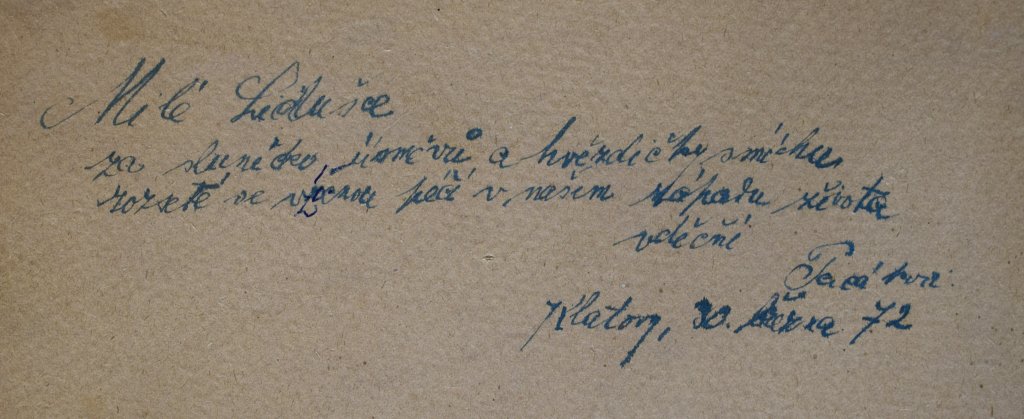 Milé Lidušce
za sluníčko úsměvů a hvězdičky smíchu
rozseté se vzácnou péčí v našem západu života
vděčni
Klatovy, 30. března 72